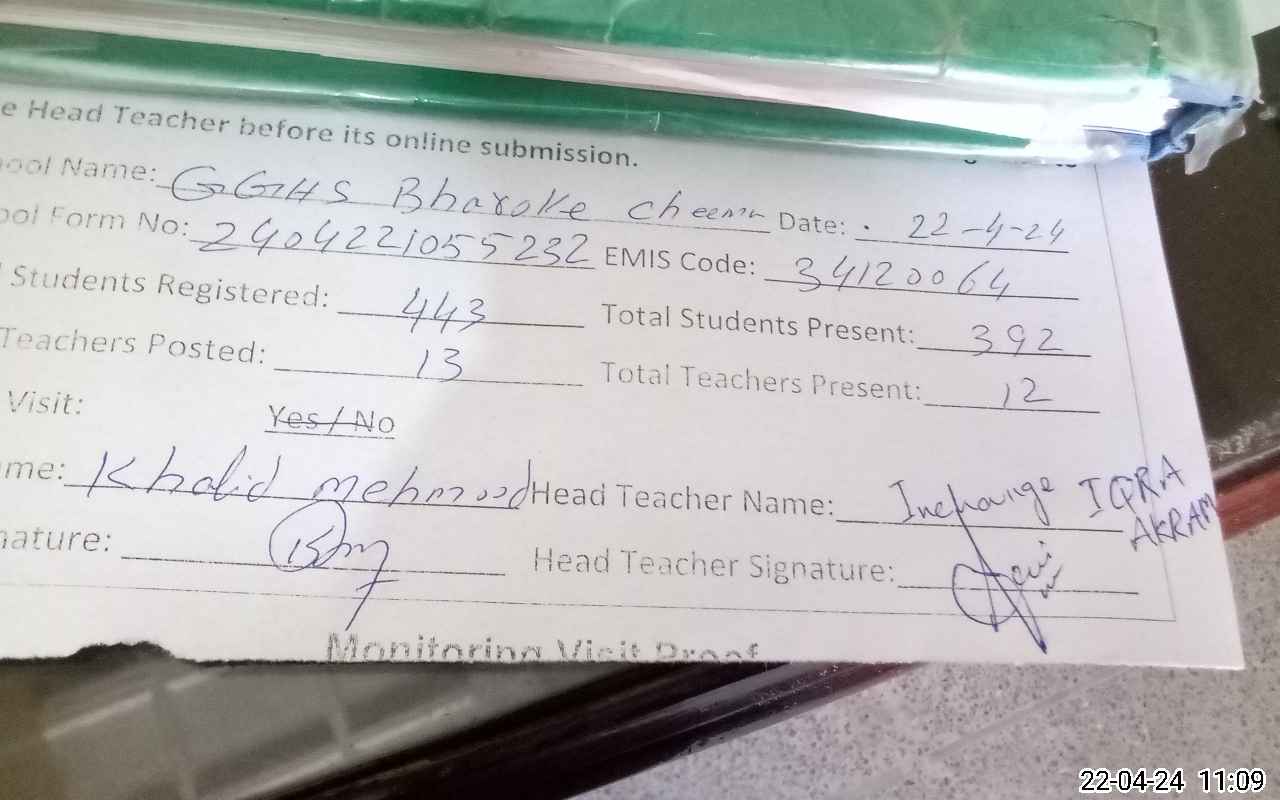 e Head Teacher before its online submission.
ool Name: GGHS Bharoke Cheema Date: . 22-4-24
ool Form No: 2404221055232 EMIS Code: 34120064
Students Registered: 443 Total Students Present: 392
Teachers Posted: 13 Total Teachers Present: 12
Visit: Yes / No
me: Khalid mehmood Head Teacher Name: Incharge IQRA AKRAM
nature: Head Teacher Signature:
Monitoring Visit Proof
22-04-24 11:09